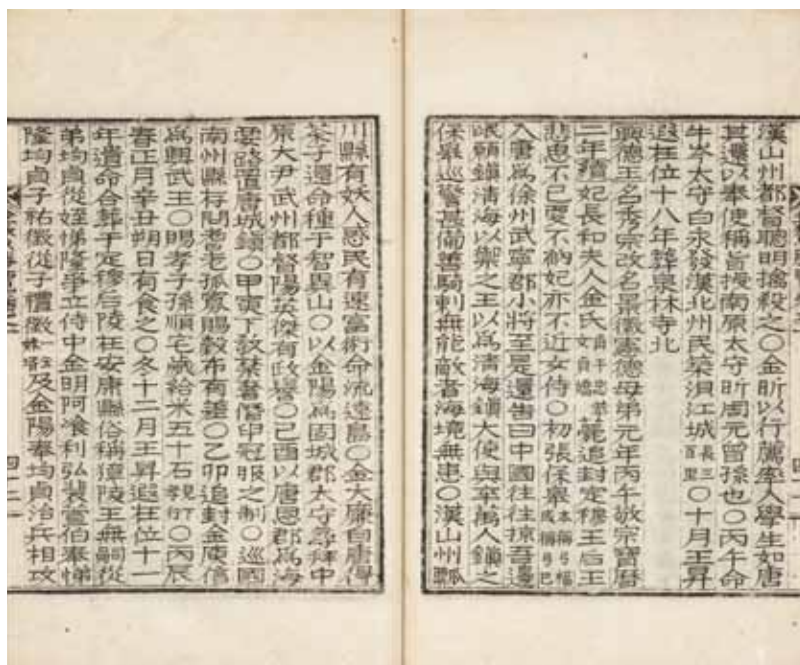 漢山州都督聰明擒殺之○金昕以行薦率人學生如唐
其還以奉使稱旨授南原太守昕周元曾孫也○丙午命
牛岑太守白永發漢北州民築浿江城長三百里○十月王昇
遐在位十八年葬泉林寺北
興德王名秀宗改名景徽憲德母弟元年丙午敬宗寶曆
二年續妃長和夫人金氏薨追封定穆王后王
悲思不已愛不納妃亦不近女侍○初張保皐本稱弓福或稱弓巴
入唐爲徐州武寧郡小將至是還告曰中國往往掠吾邊
氓願鎮淸海以禦之王以爲淸海鎮大使與卒萬人鎮之
保皐巡警甚備善騎刺無能敵者海境無患○漢山州瓢
川縣有妖人惑民有速富術命流遠島○金大廉自唐得
茶子還命種于智異山○以金陽爲固城郡太守尋拜中
原大尹武州都督陽英傑有政譽○己酉以唐恩郡爲海
要路置唐城鎮○甲寅下敎禁奢僭申冠服之制○巡國
南州縣存問耆老孤寡賜穀布有差○乙卯追封金庾信
爲興武王○賜孝子孫順宅歲給米五十石孝行下○丙辰
春正月辛丑朔日有食之○冬十二月王昇遐在位十一
年遺命合葬于定穆后陵在安康縣俗稱獐陵王無嗣從
弟均貞從姪悌隆爭立侍中金明阿飡利弘裴萱伯奉悌
隆均貞子祐徵從子禮徵及金陽奉均貞治兵相攻